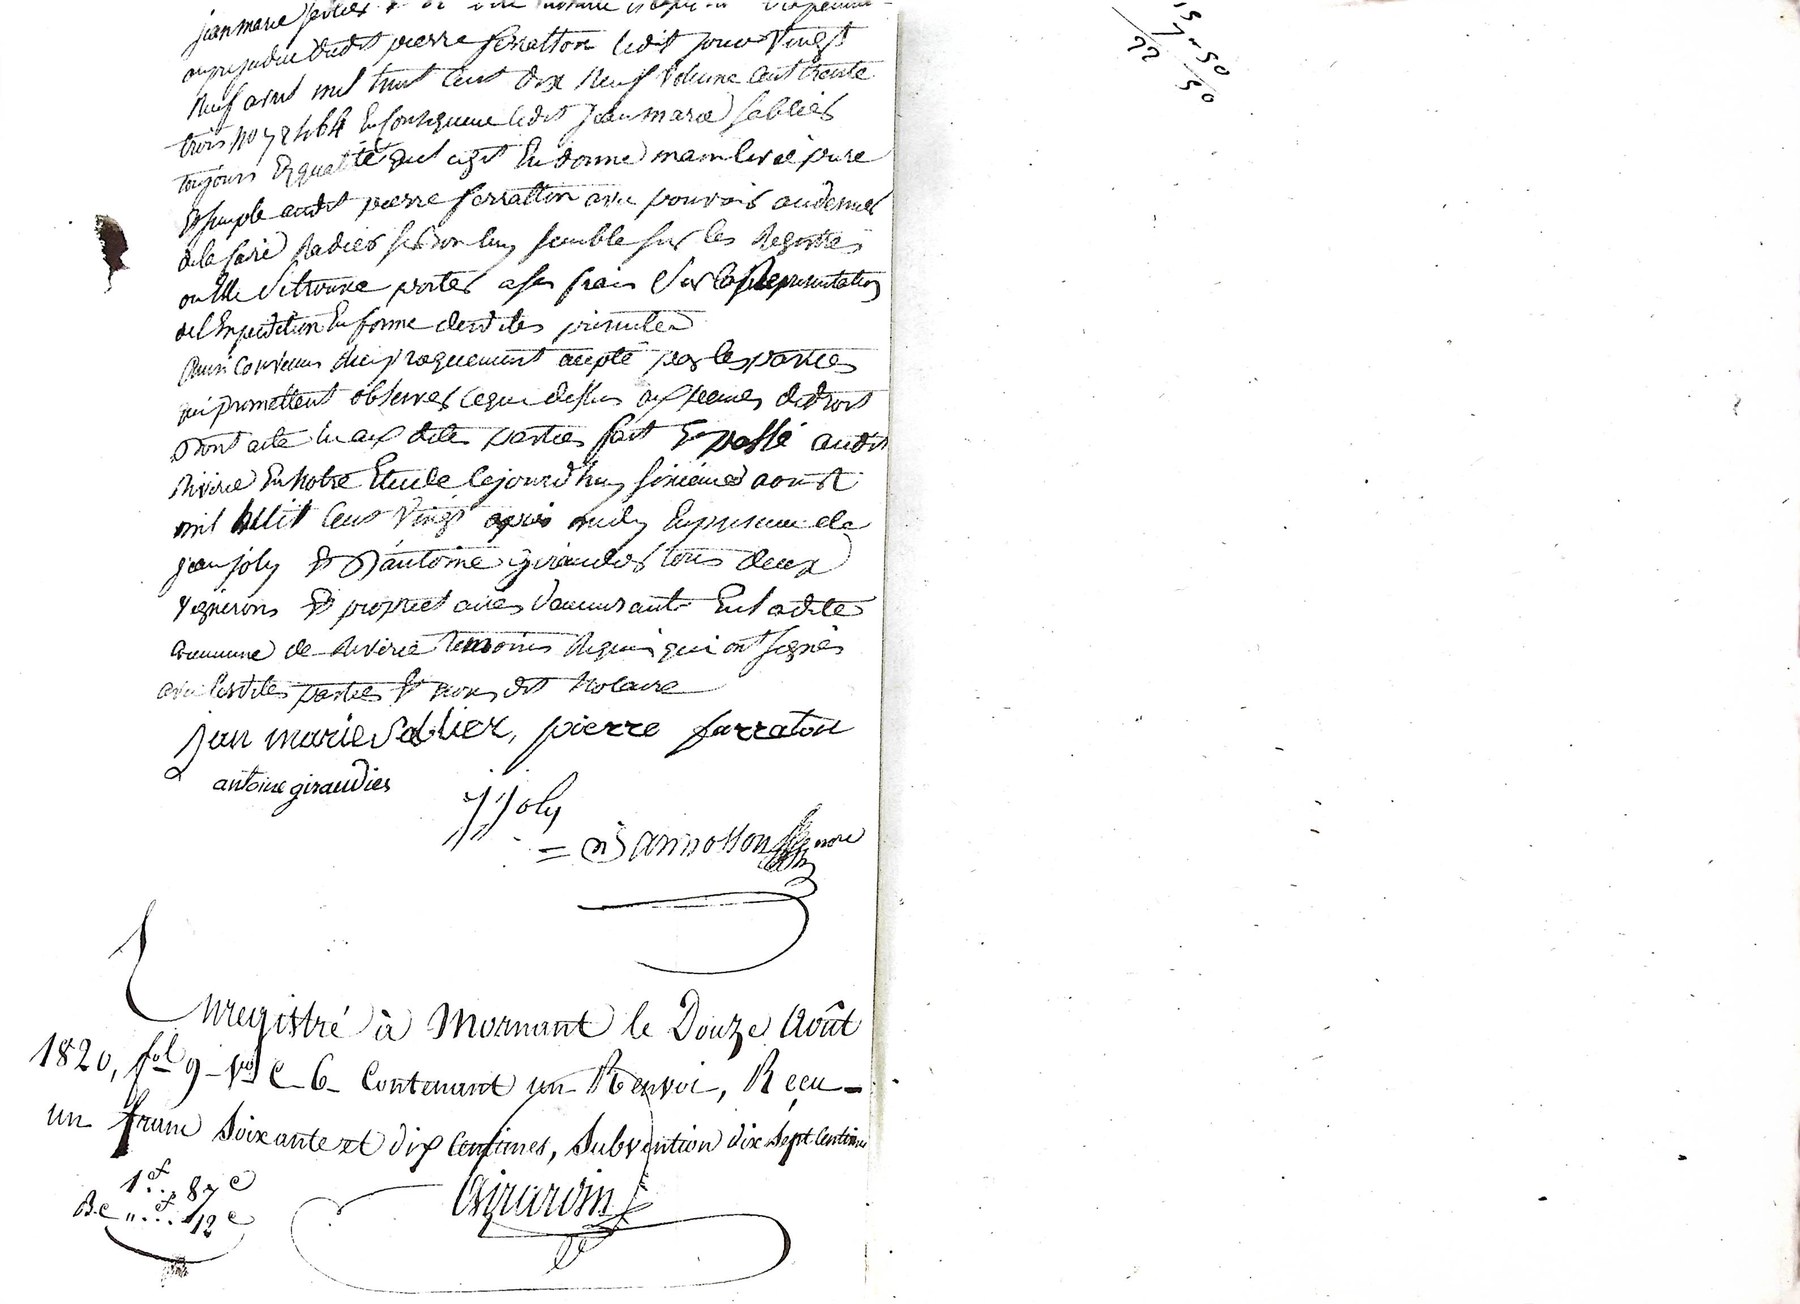 jean marie sablier
au prejudice dudit pierre ferratton ledit jour vingt
neuf avril mil huit cent dix neuf volume cent trente
trois No 78464 En consequence ledit jean marie sablier
toujours En qualité quil agit En donne main levée pure
Et simple audit pierre ferratton avec pouvoir audernier
de la faire Radier si bon luy semble sur les Registres
ou Elle se trouve portée a ses frais Sur la Representation
de l'Expedition En forme desdites presentes
ainsi convenu Reciproquement accepté par les parties
qui promettent observer ce que dessus aux peines de droit
Dont acte lu aux dites parties fait Et passé audit
Riverie En notre Etude Cejourd'huy sixieme aoust
mil huit Cent vingt après midy En presence de
jean joly Et d'antoine giraudier tous deux
vignerons Et proprietaires demeurants En ladite
commune de Riverie temoins Requis qui ont signés
avec lesdites parties Et nous dit Notaire
jan marie Sablier, pierre farraton
antoine giraudier
jj joly
= Bannosson nore
Enregistré à Mornant le Douze Août
1820, fol 9 vo C 6 Contenant un Renvoi, Reçu
un franc Soixante et dix Centimes, Subvention dix sept centimes
1f.. 87c
B.e "...f 12c
Girardin